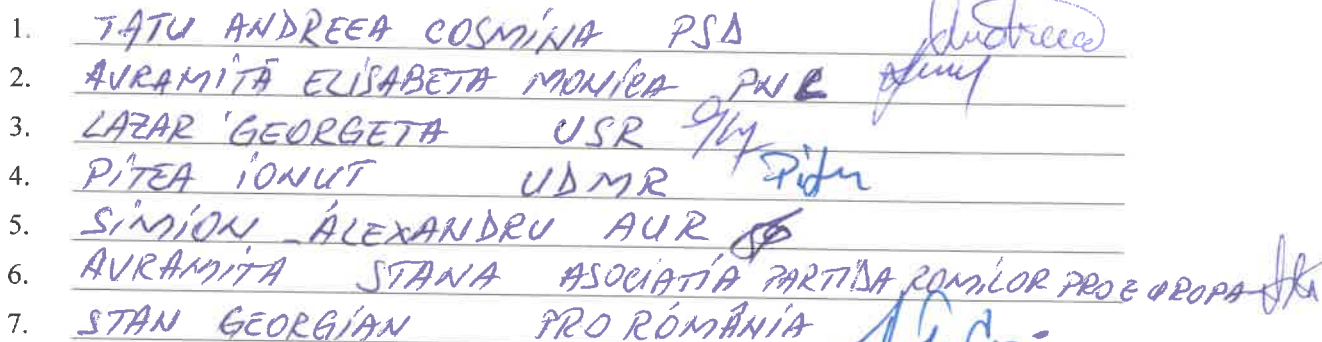 1. TATU ANDREEA COSMINA PSD
2. AVRAMIȚĂ ELISABETA MONICA PNL
3. LAZAR GEORGETA USR
4. PITEA IONUT UDMR Pitu
5. SIMION ALEXANDRU AUR
6. AVRAMITA STANA ASOCIATIA PARTIDA ROMILOR PRO EUROPA
7. STAN GEORGIAN PRO ROMÂNIA